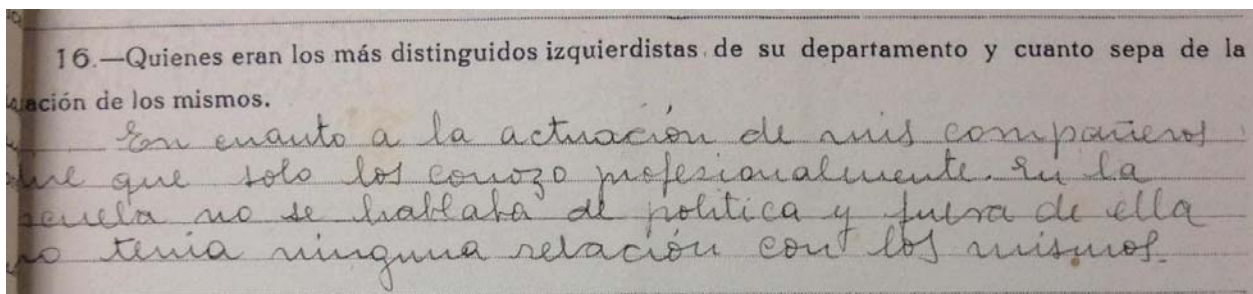 16.—Quienes eran los más distinguidos izquierdistas de su departamento y cuanto sepa de la
uación de los mismos.
En cuanto a la actuación de mis compañeros
que solo los conozo profesionalmente. En la
scuela no se hablaba de politica y fuera de ella
no tenia ninguna relación con los mismos.